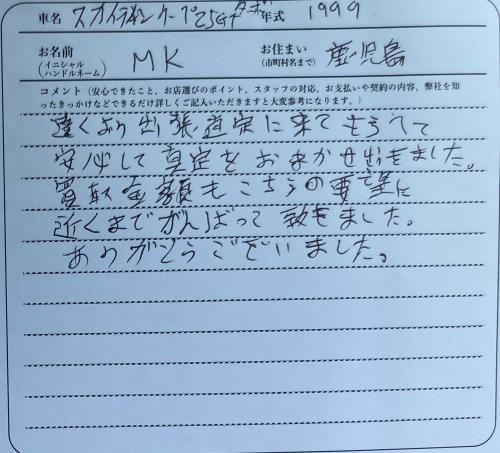 車名 スカイラインクーペ25GTターボ 年式 1999
お名前 (イニシャル ハンドルネーム) MK お住まい (市町村名まで) 鹿児島
コメント（安心できたこと、お店選びのポイント、スタッフの対応、お支払いや契約の内容、弊社を知
ったきっかけなどできるだけ詳しくご記入いただきますと大変参考になります。）
遠くより出張査定に来てもらって
安心して査定をおまかせ出来ました。
買取金額もこちらの要望に
近くまでがんばって頂きました。
ありがとうございました。